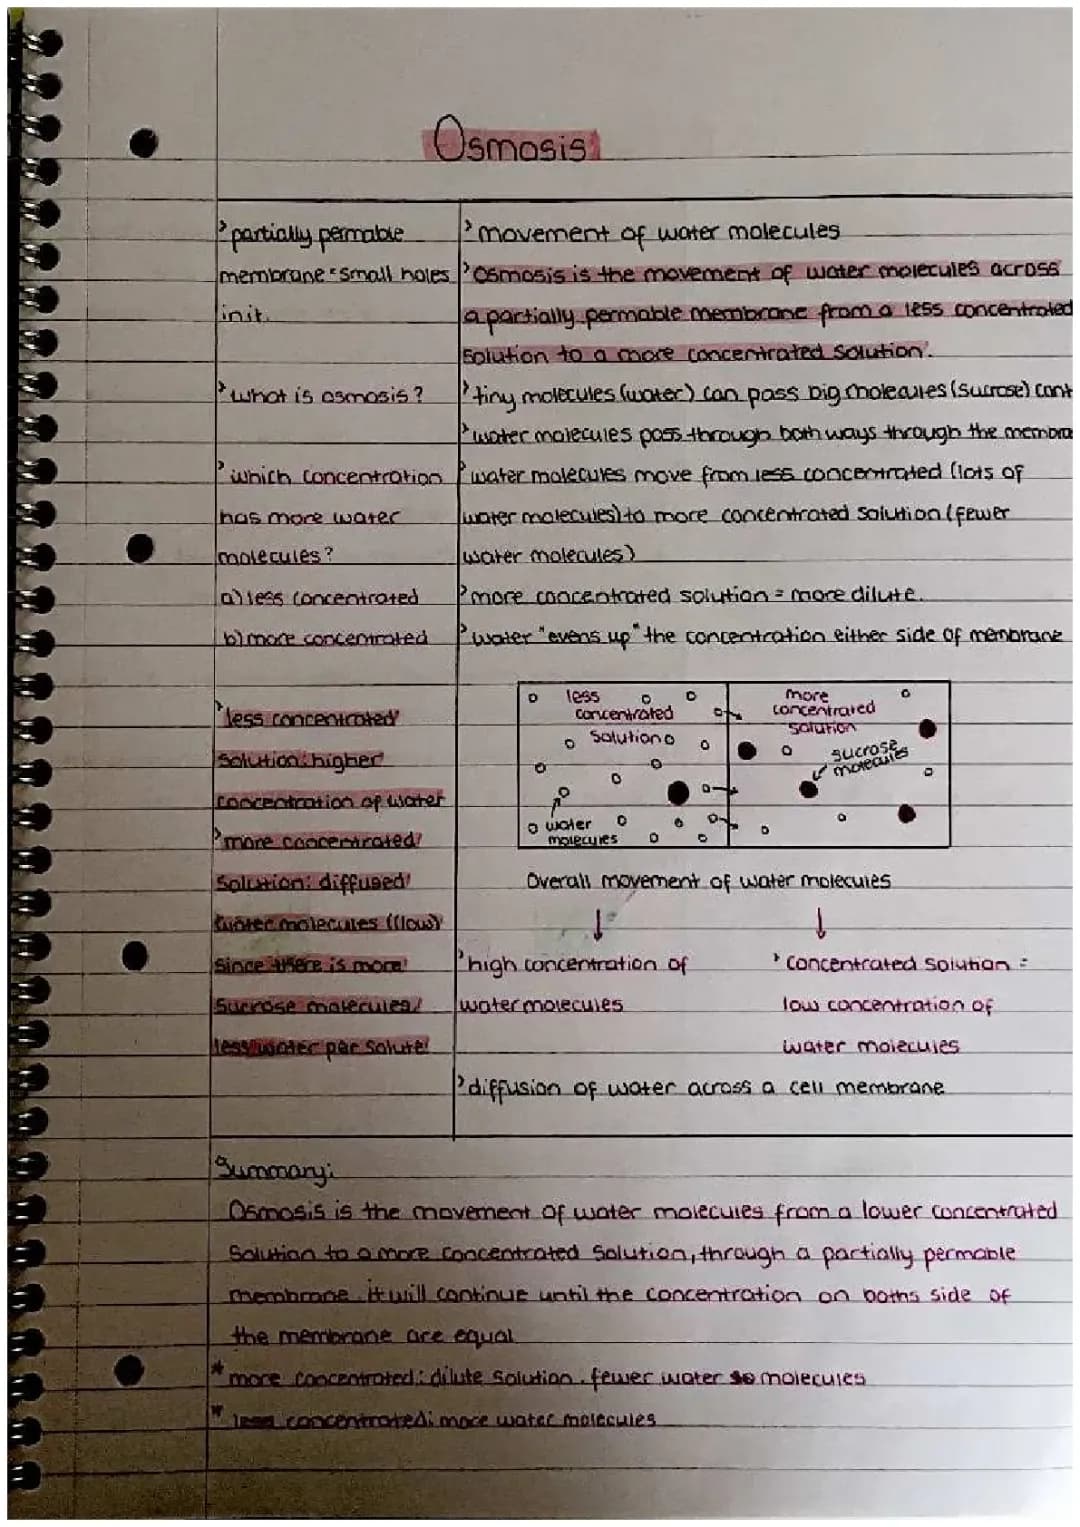 Osmosis
› partially permable
membrane = small holes
init.
› what is osmosis?
› which concentration
has more water
molecules?
a) less concentrated
b) more concentrated
› less concentrated
solution: higher
concentration of water
› more concentrated
solution: diffused
water molecules (low)
since there is more
sucrose molecules/
less water per solute
› movement of water molecules
› Osmosis is the movement of water molecules across
a partially permable membrane from a less concentrated
solution to a more concentrated solution.
› tiny molecules (water) can pass big molecules (sucrose) cant
› water molecules pass through both ways through the membra
› water molecules move from less concentrated (lots of
water molecules) to more concentrated solution (fewer
water molecules)
› more concentrated solution = more dilute.
› water "evens up" the concentration either side of membrane
less
concentrated
solution
water
molecules
more
concentrated
solution
sucrose
molecules
Overall movement of water molecules
› high concentration of
water molecules
› concentrated solution =
low concentration of
water molecules
› diffusion of water across a cell membrane
Summary:
Osmosis is the movement of water molecules from a lower concentrated
solution to a more concentrated solution, through a partially permable
membrane. it will continue until the concentration on boths side of
the membrane are equal
* more concentrated: dilute solution. fewer water molecules
* less concentrated: more water molecules